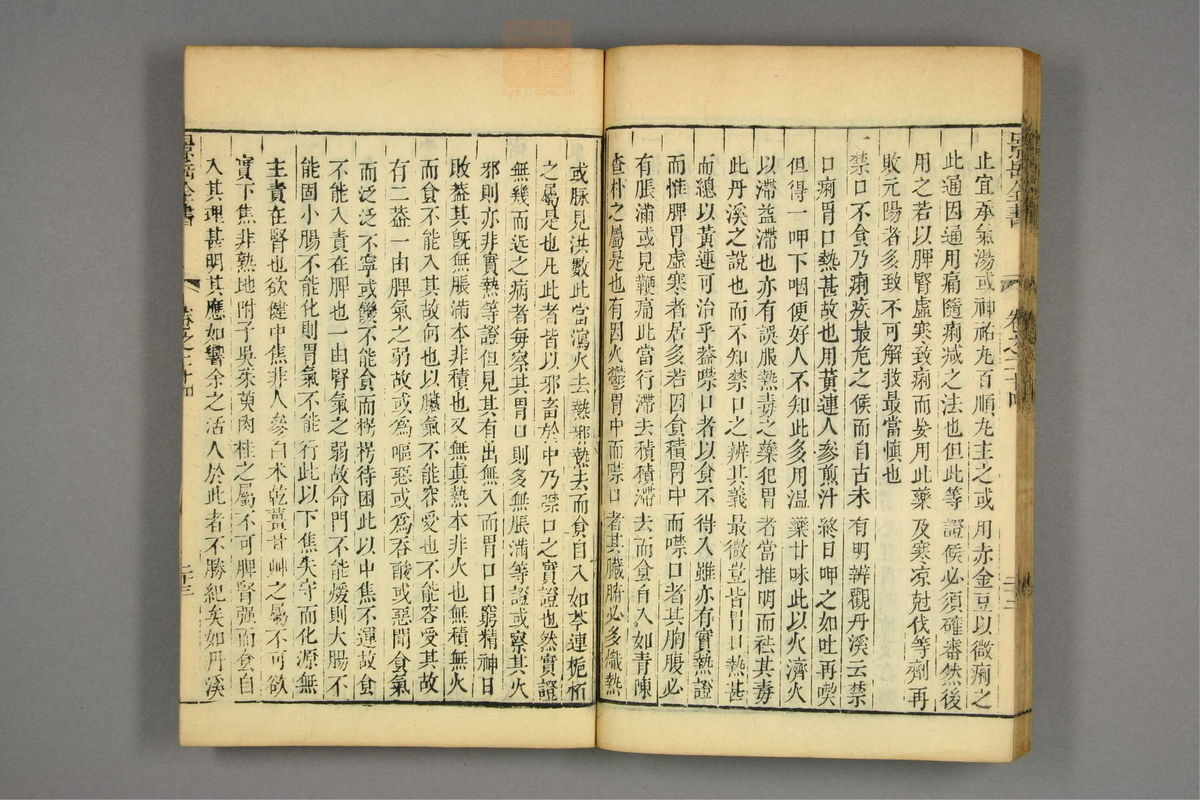 止宜承氣湯或神祐丸百順丸主之或用赤金豆以微痢之
此通因通用痛隨痢減之法也但此等證候必須確審然後
用之若以脾腎虛寒致痢而妄用此藥及寒凉尅伐等劑再
敗元陽者多致不可解救最當慎也
一禁口不食乃痢疾最危之候而自古未有明辨觀丹溪云禁
口痢胃口熱甚故也用黃連人參煎汁終日呷之如吐再喫
但得一呷下咽便好人不知此多用溫藥甘味此以火濟火
以滯益滯也亦有誤服熱毒之藥犯胃者當推明而祛其毒
此丹溪之說也而不知禁口之辨其義最微豈皆胃口熱甚
而總以黃連可治乎葢噤口者以食不得入雖亦有實熱證
而惟脾胃虛寒者居多若因食積胃中而噤口者其胸腹必
有脹滿或見鞕痛此當行滯去積積滯去而食自入如青陳
查朴之屬是也有因火鬱胃中而噤口者其臟腑必多熾熱
景岳全書
卷之二十四
二十三
或脉見洪數此當瀉火去熱邪熱去而食自入如芩連梔栢
之屬是也凡此者皆以邪畜於中乃禁口之實證也然實證
無幾而近之病者每察其胃口則多無脹滿等證或察其火
邪則亦非實熱等證但見其有出無入而胃口日窮精神日
敗葢其旣無脹滿本非積也又無眞熱本非火也無積無火
而食不能入其故何也以臟氣不能容受也不能容受其故
有二葢一由脾氣之弱故或爲嘔惡或爲吞酸或惡聞食氣
而泛泛不寧或饑不能食而楞楞待困此以中焦不運故食
不能入責在脾也一由腎氣之弱故命門不能煖則大腸不
能固小腸不能化則胃氣不能行此以下焦失守而化源無
主責在腎也欲健中焦非人參白朮乾薑甘艸之屬不可欲
實下焦非熟地附子吳茱萸肉桂之屬不可脾腎强而食自
入其理甚明其應如響余之活人於此者不勝紀矣如丹溪